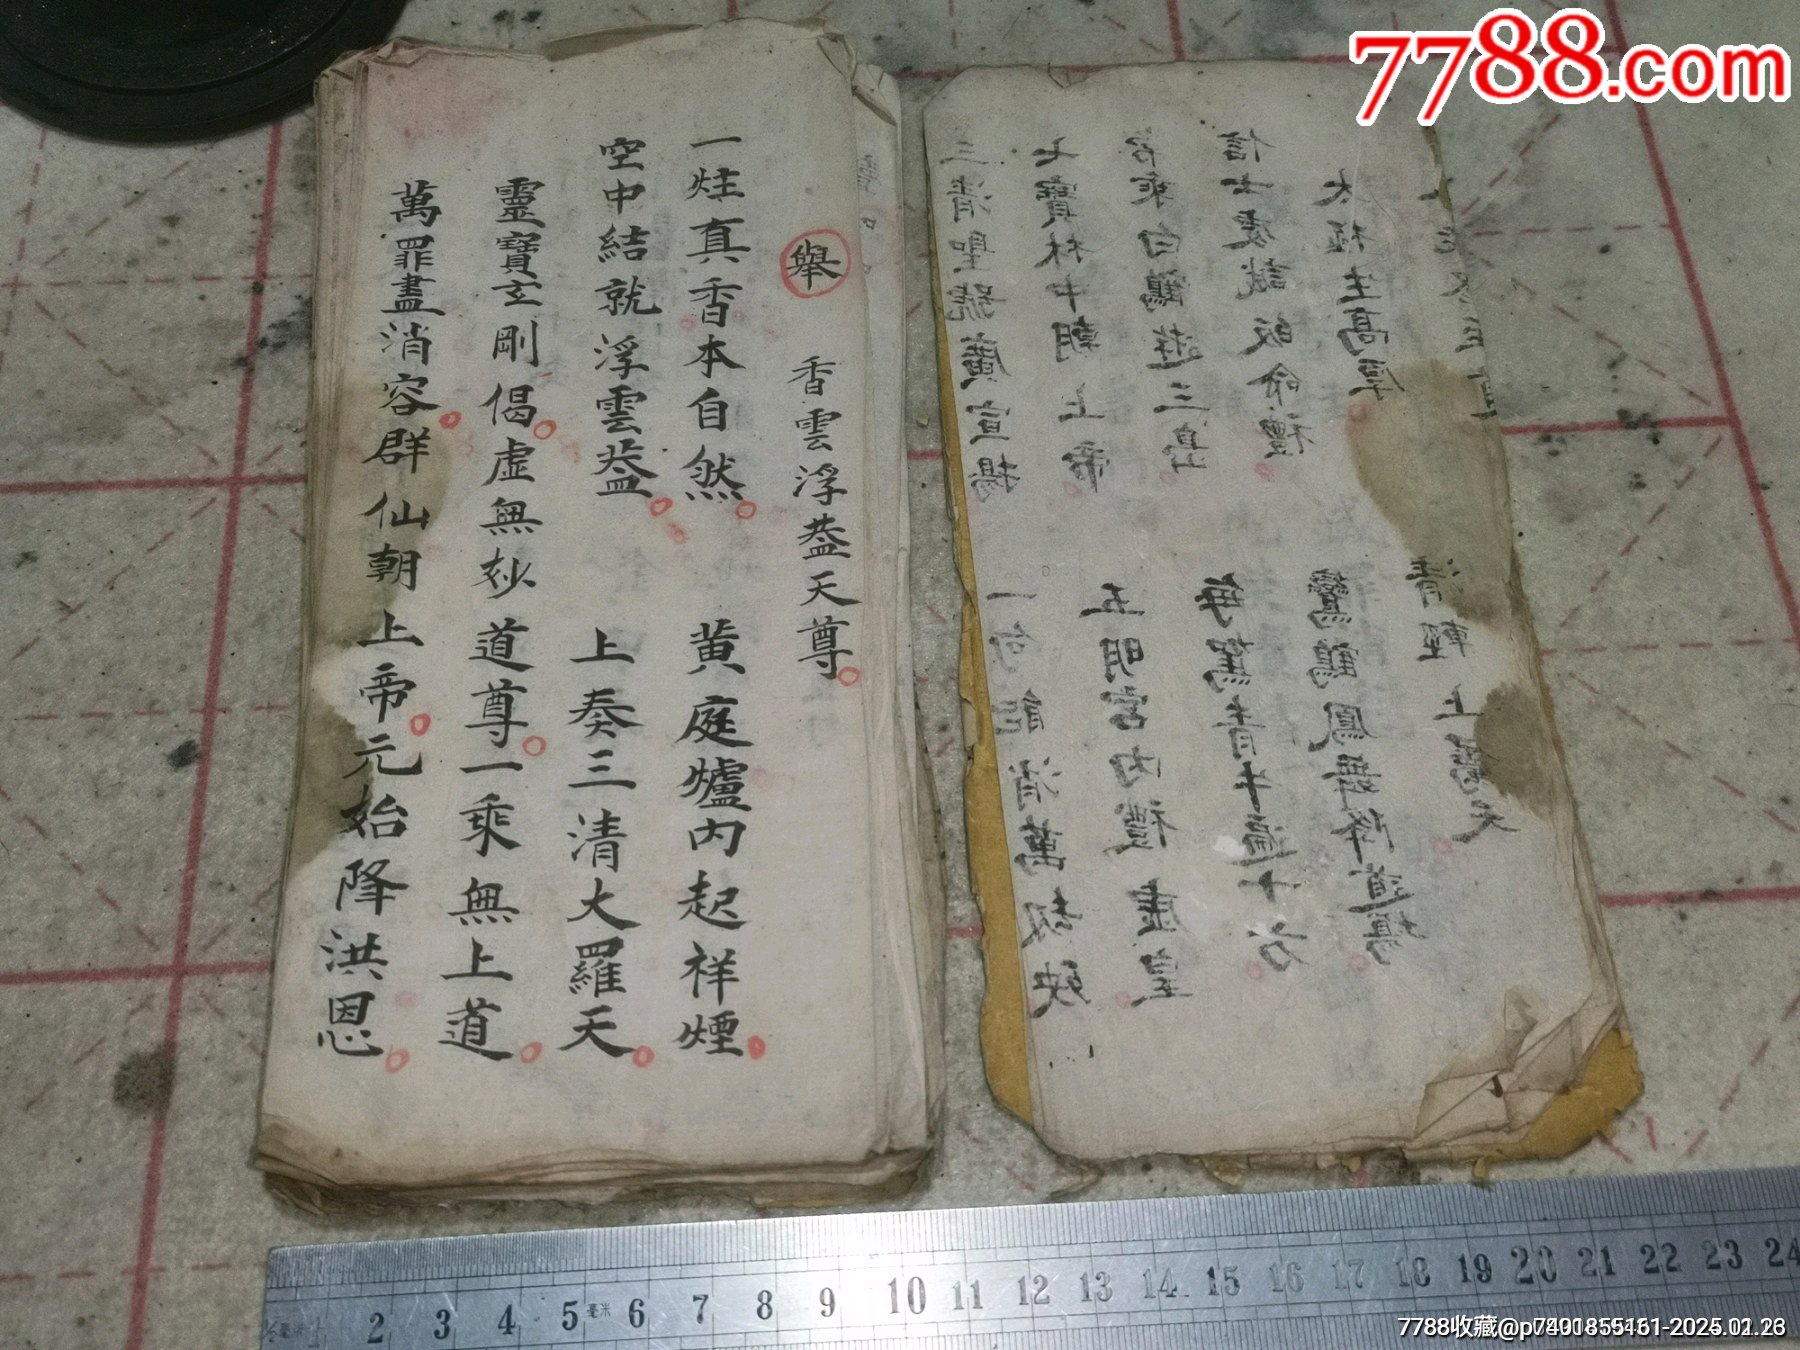 舉 香雲浮葢天尊
一炷真香本自然 黄庭爐内起祥煙
空中結就浮雲葢 上奏三清大羅天
靈寶玄剛偈虚無玅道尊一乘無上道
萬罪盡消容群仙朝上帝元始降洪恩
三清聖號廣宣揚 一句能消萬劫殃
七寶林中朝上帝 五明宮内禮虚皇
常乘白鶴遊三島 每駕青牛遍十方
信士虔誠皈命禮 鸞鶴鳳舞降道場
太極生高厚 清輕上爲天
7788.com
2 3 4 5 毫米 6 7 8 9 10 11 12 13 14 15 16 17 18 19 20 21 22 23 24
7788收藏